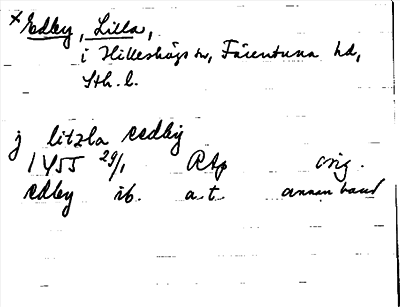 × Edby, Lilla,
i Hilleshögs sn, Färentuna hd,
Sth. l.
j litzla eedby
1455 29/1 RAp orig.
edby ib. a.t. annan hand